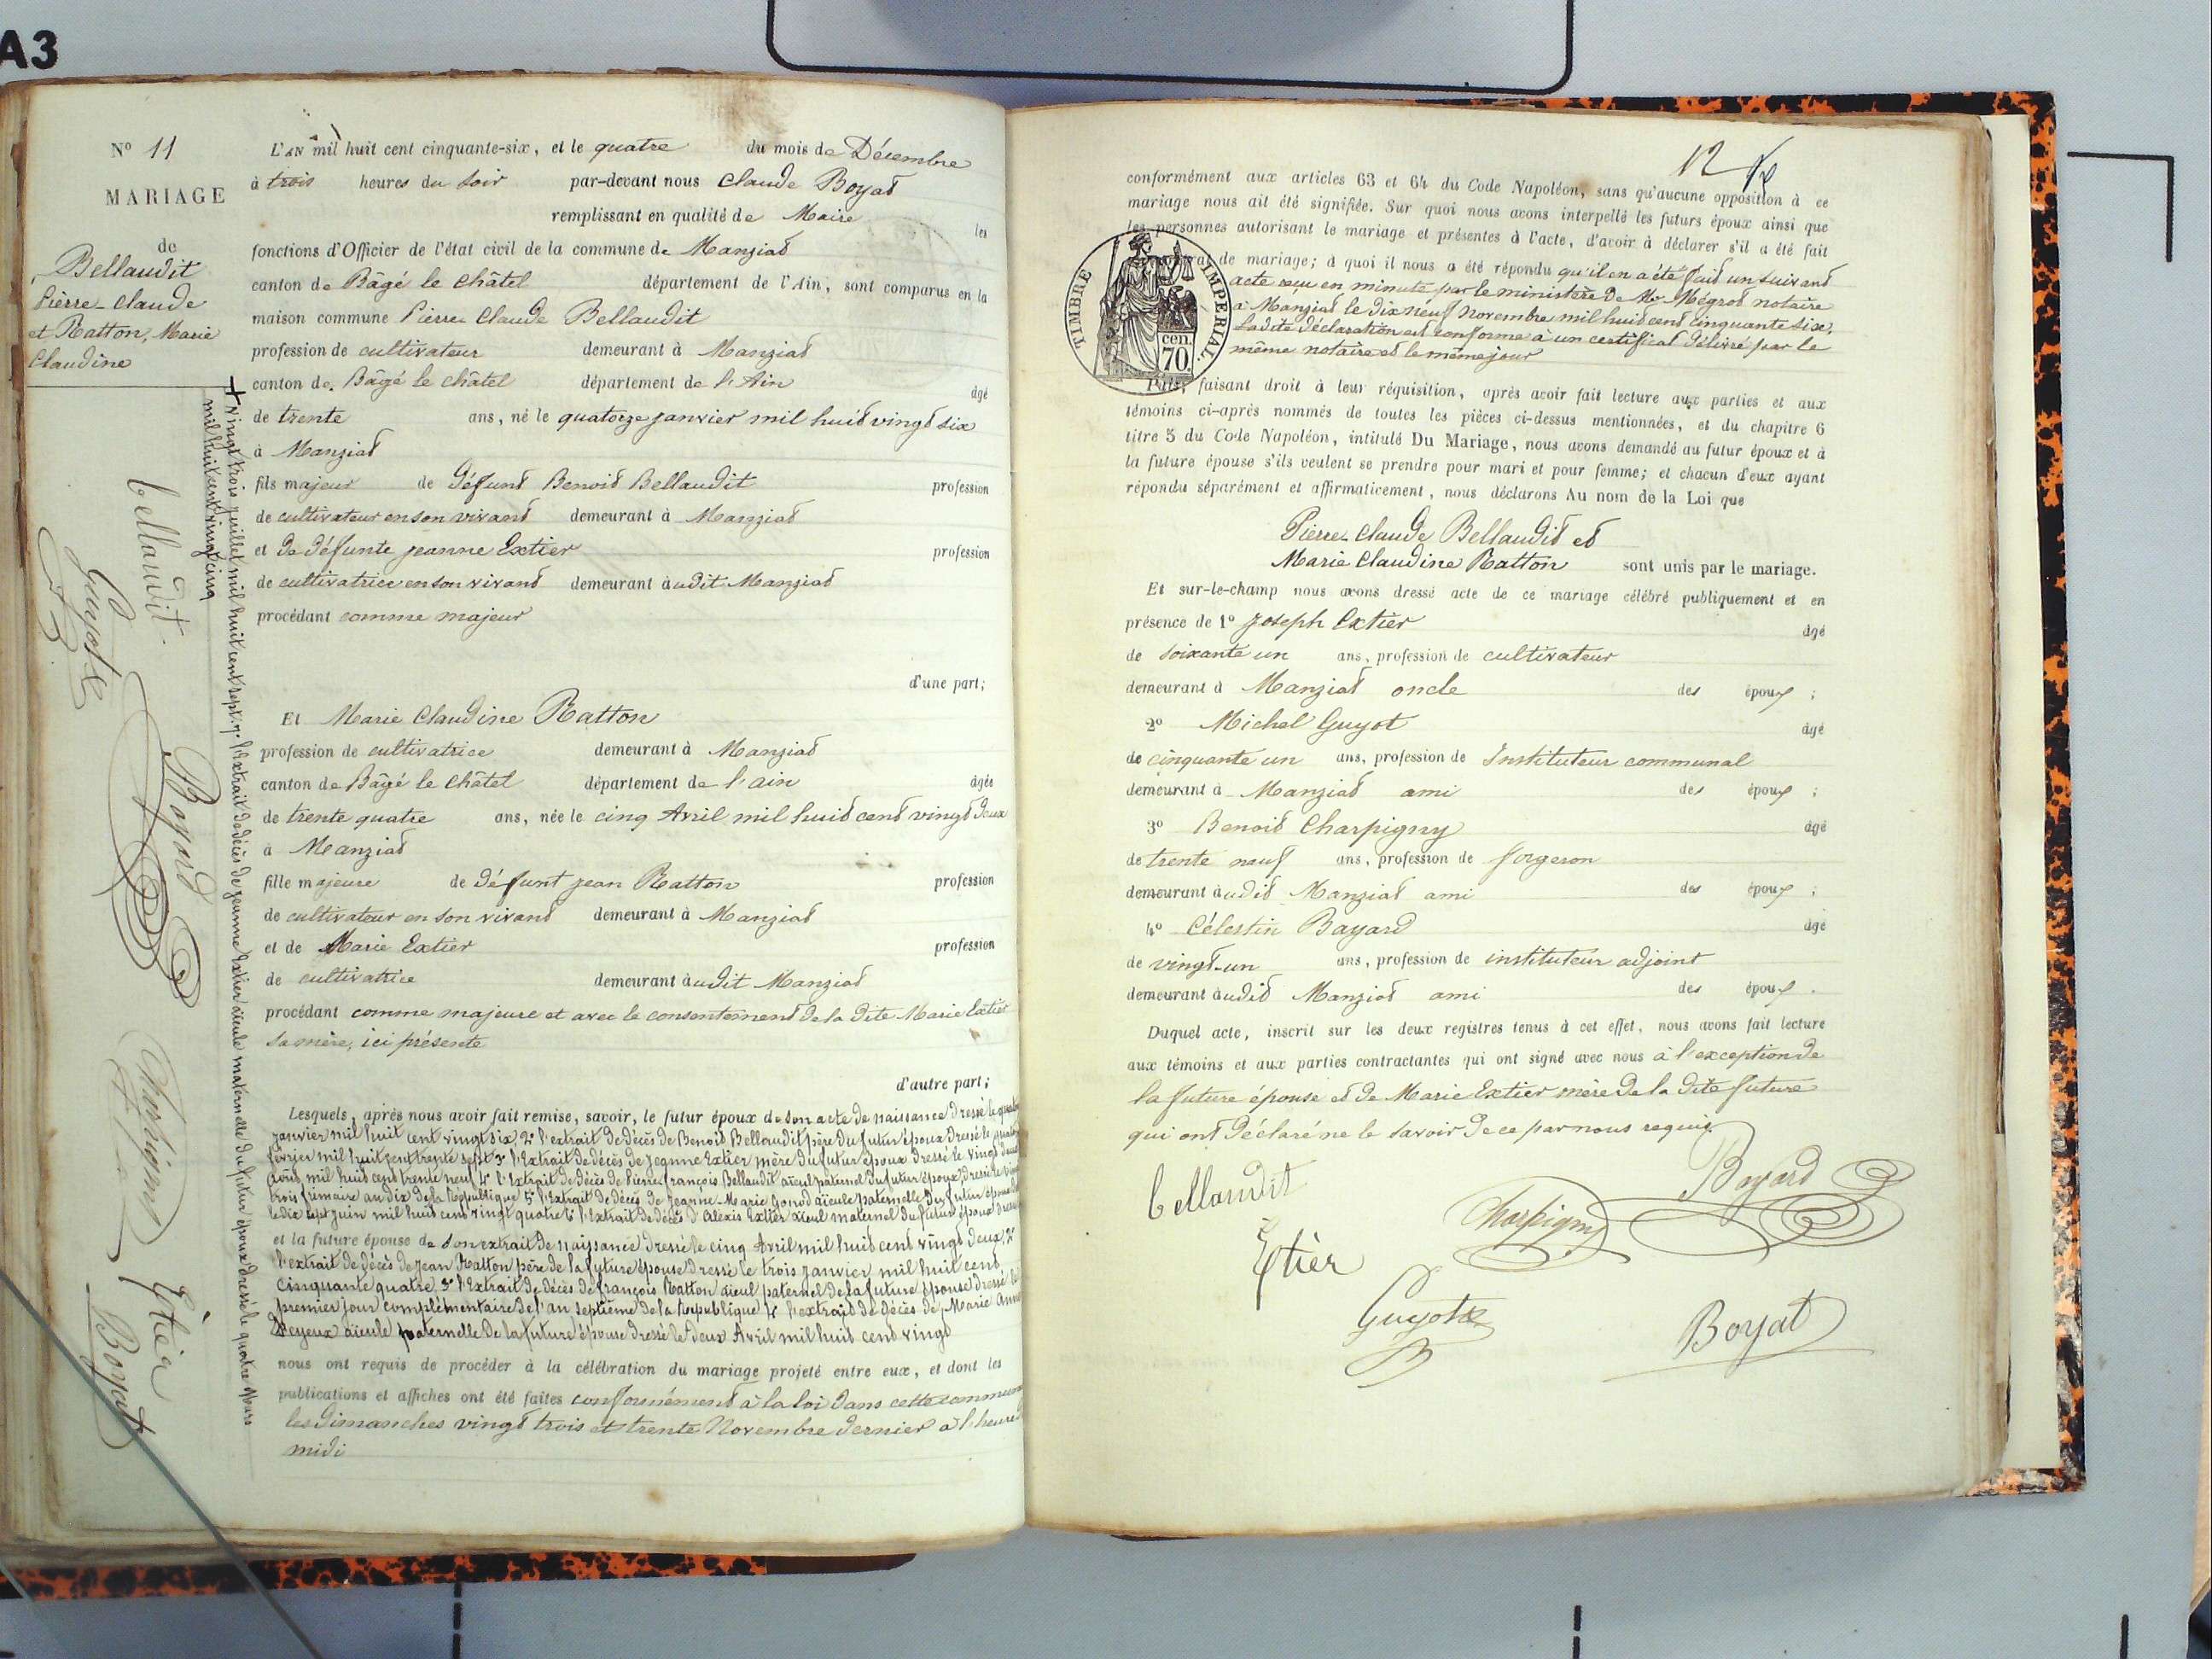 A3
N° 11
MARIAGE
de
Bellaudit
Pierre-Claude
et Ratton, Marie
Claudine
L'AN mil huit cent cinquante-six, et le quatre du mois de Décembre
à trois heures du soir par-devant nous Claude Boyat
remplissant en qualité de Maire les
fonctions d'Officier de l'état civil de la commune de Manziat
canton de Bâgé le Châtel département de l'Ain, sont comparus en la
maison commune Pierre Claude Bellaudit
profession de cultivateur demeurant à Manziat
canton de Bâgé le Châtel département de l'Ain âgé
de trente ans, né le quatorze janvier mil huit vingt six
à Manziat
fils majeur de défunt Benoit Bellaudit profession
de cultivateur en son vivant demeurant à Manziat
et de défunte jeanne Extier profession
de cultivatrice en son vivant demeurant àudit Manziat
procédant comme majeur
d'une part;
Et Marie Claudine Ratton
profession de cultivatrice demeurant à Manziat
canton de Bâgé le Châtel département de l'ain âgée
de trente quatre ans, née le cinq Avril mil huit cent vingt deux
à Manziat
fille majeure de défunt jean Ratton profession
de cultivateur en son vivant demeurant à Manziat
et de Marie Extier profession
de cultivatrice demeurant àudit Manziat
procédant comme majeure et avec le consentement de la dite Marie Extier
sa mère, ici présente
d'autre part;
Lesquels, après nous avoir fait remise, savoir, le futur époux de son acte de naissance dressé le
janvier mil huit cent vingt six, 2° l'extrait de décès de Benoit Bellaudit père du futur époux dressé le
février mil huit cent trente sept 3° l'Extrait de décès de Jeanne Extier mère du futur époux dressé le vingt
août mil huit cent trente neuf 4° l'Extrait de décès de Pierre François Bellaudit aïeul paternel du futur époux, dressé le vingt
trois frimaire an dix de la République 5° l'Extrait de décès de Jeanne-Marie Gonod aïeule paternelle du futur époux
le dix sept juin mil huit cent vingt quatre 6° l'Extrait de décès d'Alexis Extier aïeul maternel du futur époux
et la future épouse de son extrait de naissance dressé le cinq Avril mil huit cent vingt deux, 2°
l'extrait de décès de jean Ratton père de la future épouse dressé le trois janvier mil huit cent
Cinquante quatre 3° l'Extrait de décès de françois Ratton aïeul paternel de la future épouse dressé le
premier jour complémentaire de l'an septième de la République 4° l'extrait de décès de Marie Anne
aïeule paternelle de la future épouse dressé le deux Avril mil huit cent vingt
nous ont requis de procéder à la célébration du mariage projeté entre eux, et dont les
publications et affiches ont été faites conformément à la loi dans cette commune
les dimanches vingt trois et trente Novembre dernier à l'heure de
midi
+ vingt trois juillet mil huit cent sept 7° l'extrait de décès de jeanne Extier aïeule maternelle du futur époux dressé le quatre Mars
mil huit cent vingt cinq
bellaudit
Guyot
Bayard
Charpigny
Etier
Boyat
12
conformément aux articles 63 et 64 du Code Napoléon, sans qu'aucune opposition à ce
mariage nous ait été signifiée. Sur quoi nous avons interpellé les futurs époux ainsi que
les personnes autorisant le mariage et présentes à l'acte, d'avoir à déclarer s'il a été fait
de mariage; à quoi il nous a été répondu qu'il en a été fait un suivant
acte reçu en minute par le ministère de Me Mégrot notaire
à Manziat le dix neuf Novembre mil huit cent cinquante six,
Ladite déclaration est conforme à un certificat délivré par le
même notaire et le même jour
TIMBRE IMPERIAL.
cen.
70.
Puis, faisant droit à leur réquisition, après avoir fait lecture aux parties et aux
témoins ci-après nommés de toutes les pièces ci-dessus mentionnées, et du chapitre 6
titre 5 du Code Napoléon, intitulé Du Mariage, nous avons demandé au futur époux et à
la future épouse s'ils veulent se prendre pour mari et pour femme; et chacun d'eux ayant
répondu séparément et affirmativement, nous déclarons Au nom de la Loi que
Pierre Claude Bellaudit et
Marie Claudine Ratton sont unis par le mariage.
Et sur-le-champ nous avons dressé acte de ce mariage célébré publiquement et en
présence de 1° Joseph Extier âgé
de soixante un ans, profession de cultivateur
demeurant à Manziat oncle des époux ;
2° Michel Guyot âgé
de cinquante un ans, profession de Instituteur communal
demeurant à Manziat ami des époux ;
3° Benoit Charpigny âgé
de trente neuf ans, profession de forgeron
demeurant àudit Manziat ami des époux ;
4° Célestin Bayard âgé
de vingt-un ans, profession de instituteur adjoint
demeurant àudit Manziat ami des époux .
Duquel acte, inscrit sur les deux registres tenus à cet effet, nous avons fait lecture
aux témoins et aux parties contractantes qui ont signé avec nous à l'exception de
la future épouse et de Marie Extier mère de la dite future
qui ont déclaré ne le savoir de ce par nous requis.
bellaudit
Bayard
Charpigny
Etièr
Guyot
Boyat